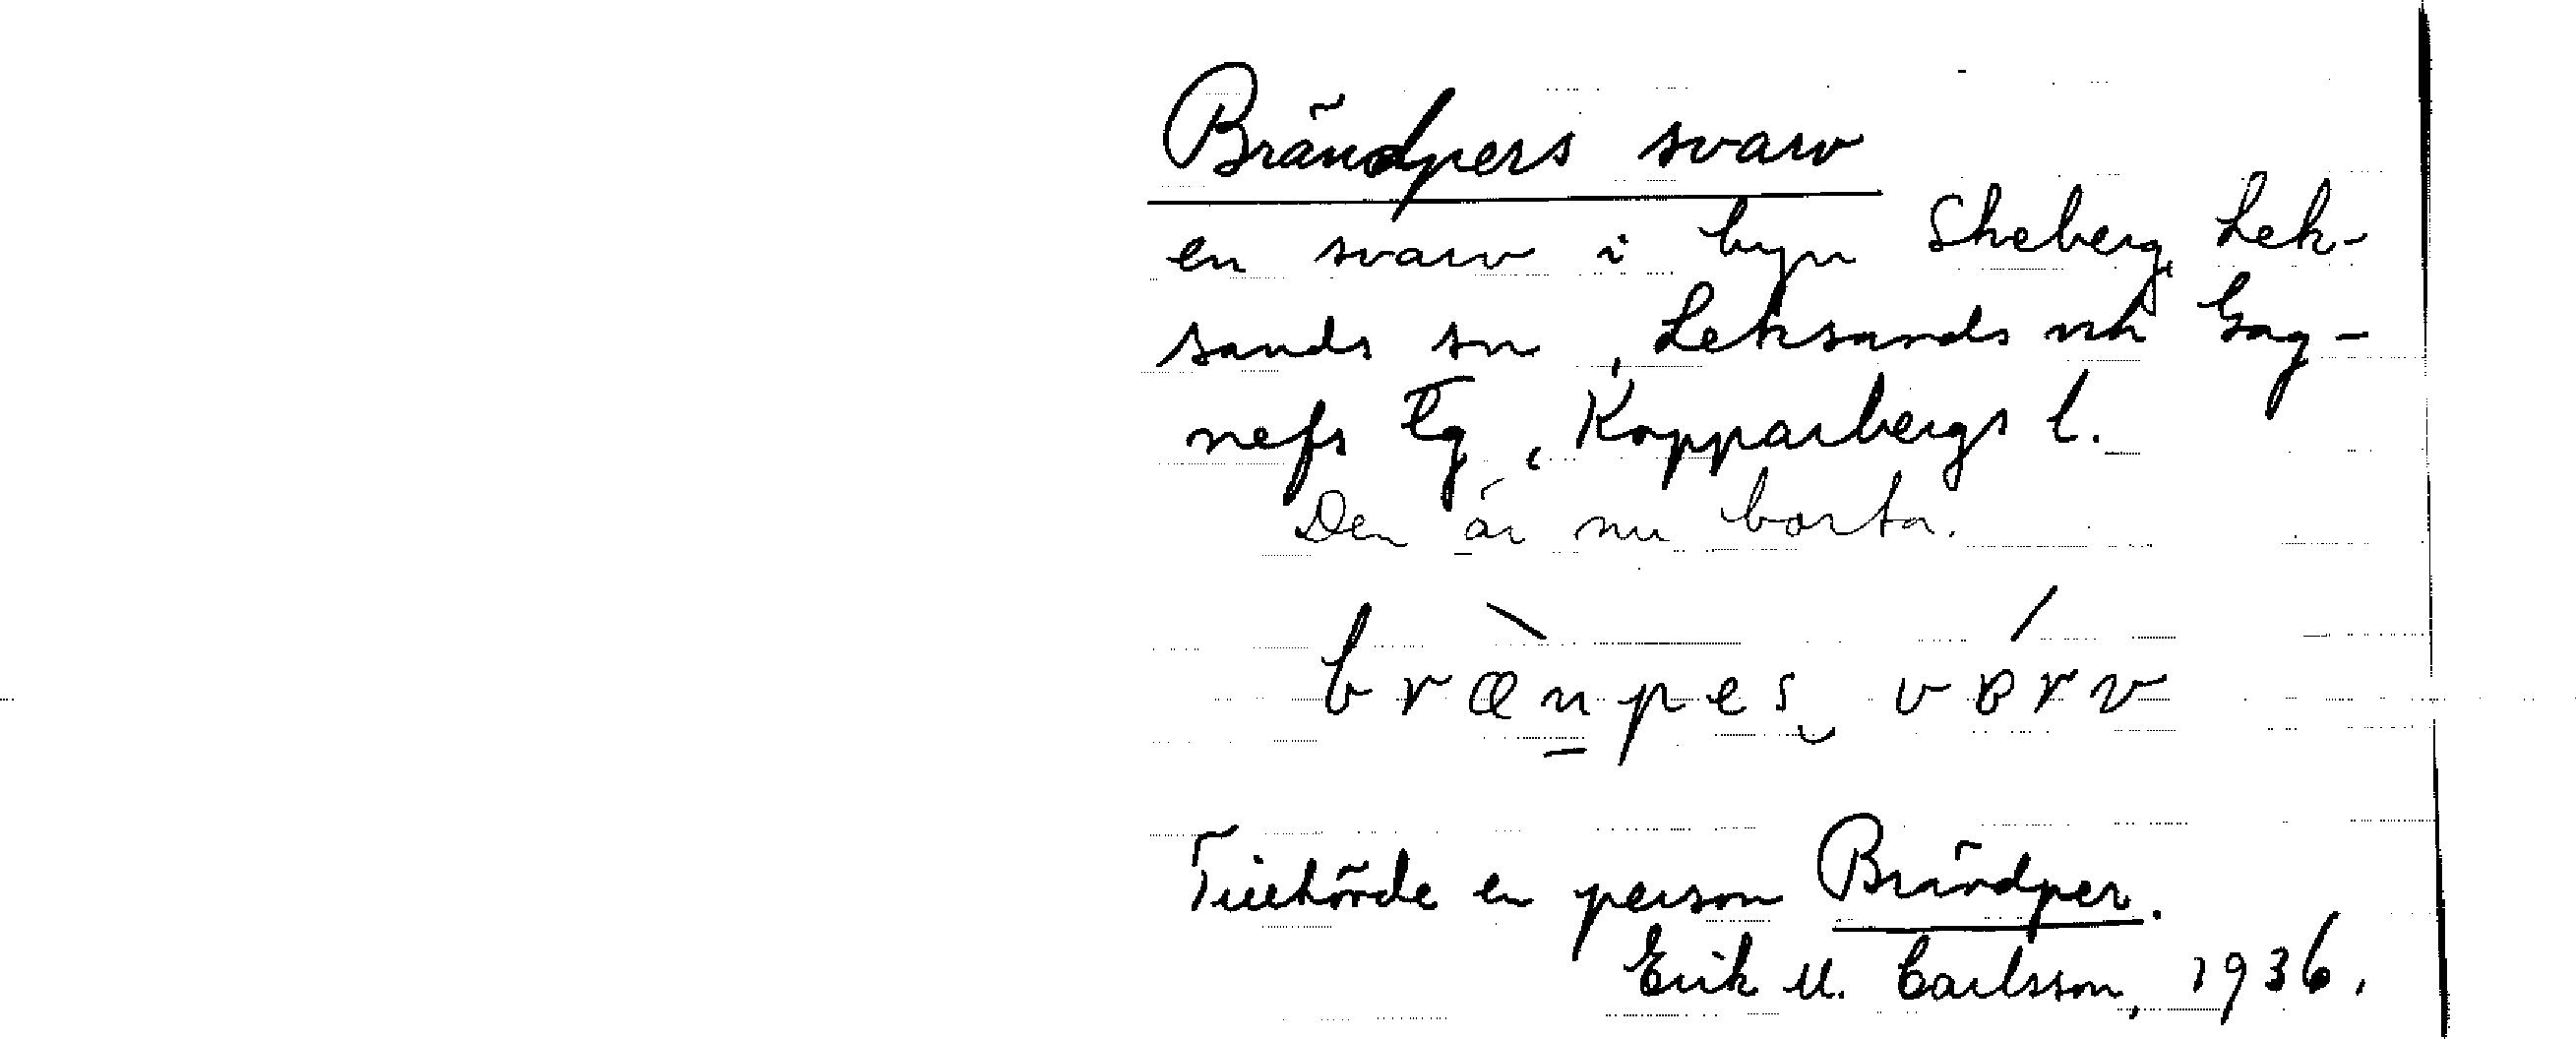 Brändpers svarv
en svarv i byn Skeberg, Lek-
sands sn, Leksands och Gag-
nefs tg, Kopparbergs l.
Den är nu borta.
Tillhörde en person Brändper.
Erik U. Carlsson, 1936.